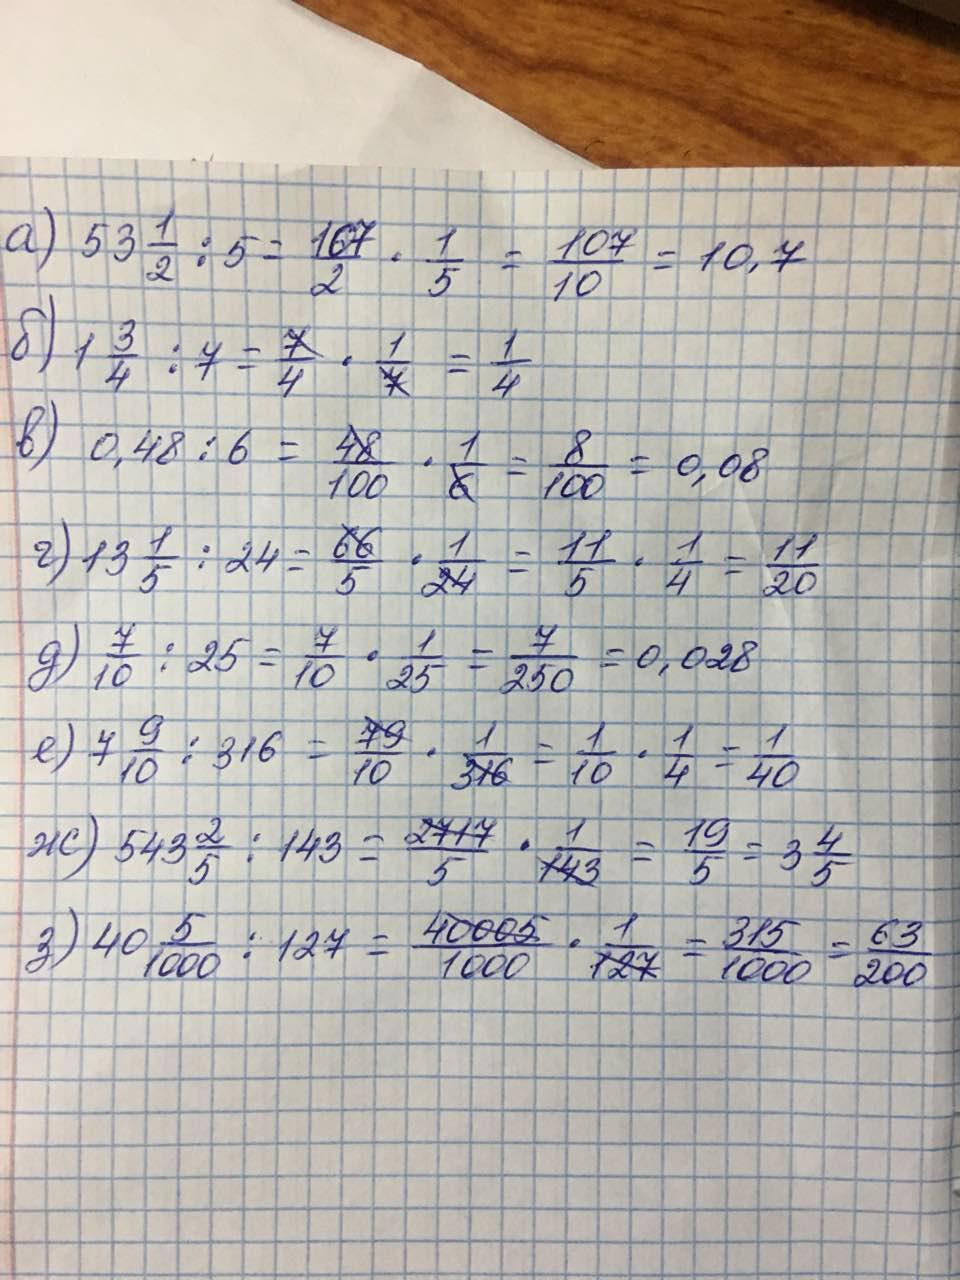 а) 53 1/2 : 5 = 107/2 · 1/5 = 107/10 = 10,7
б) 1 3/4 : 7 = 7/4 · 1/7 = 1/4
в) 0,48 : 6 = 48/100 · 1/6 = 8/100 = 0,08
г) 13 1/5 : 24 = 66/5 · 1/24 = 11/5 · 1/4 = 11/20
д) 7/10 : 25 = 7/10 · 1/25 = 7/250 = 0,028
е) 7 9/10 : 316 = 79/10 · 1/316 = 1/10 · 1/4 = 1/40
ж) 543 2/5 : 143 = 2717/5 · 1/143 = 19/5 = 3 4/5
з) 40 5/1000 : 127 = 40005/1000 · 1/127 = 315/1000 = 63/200